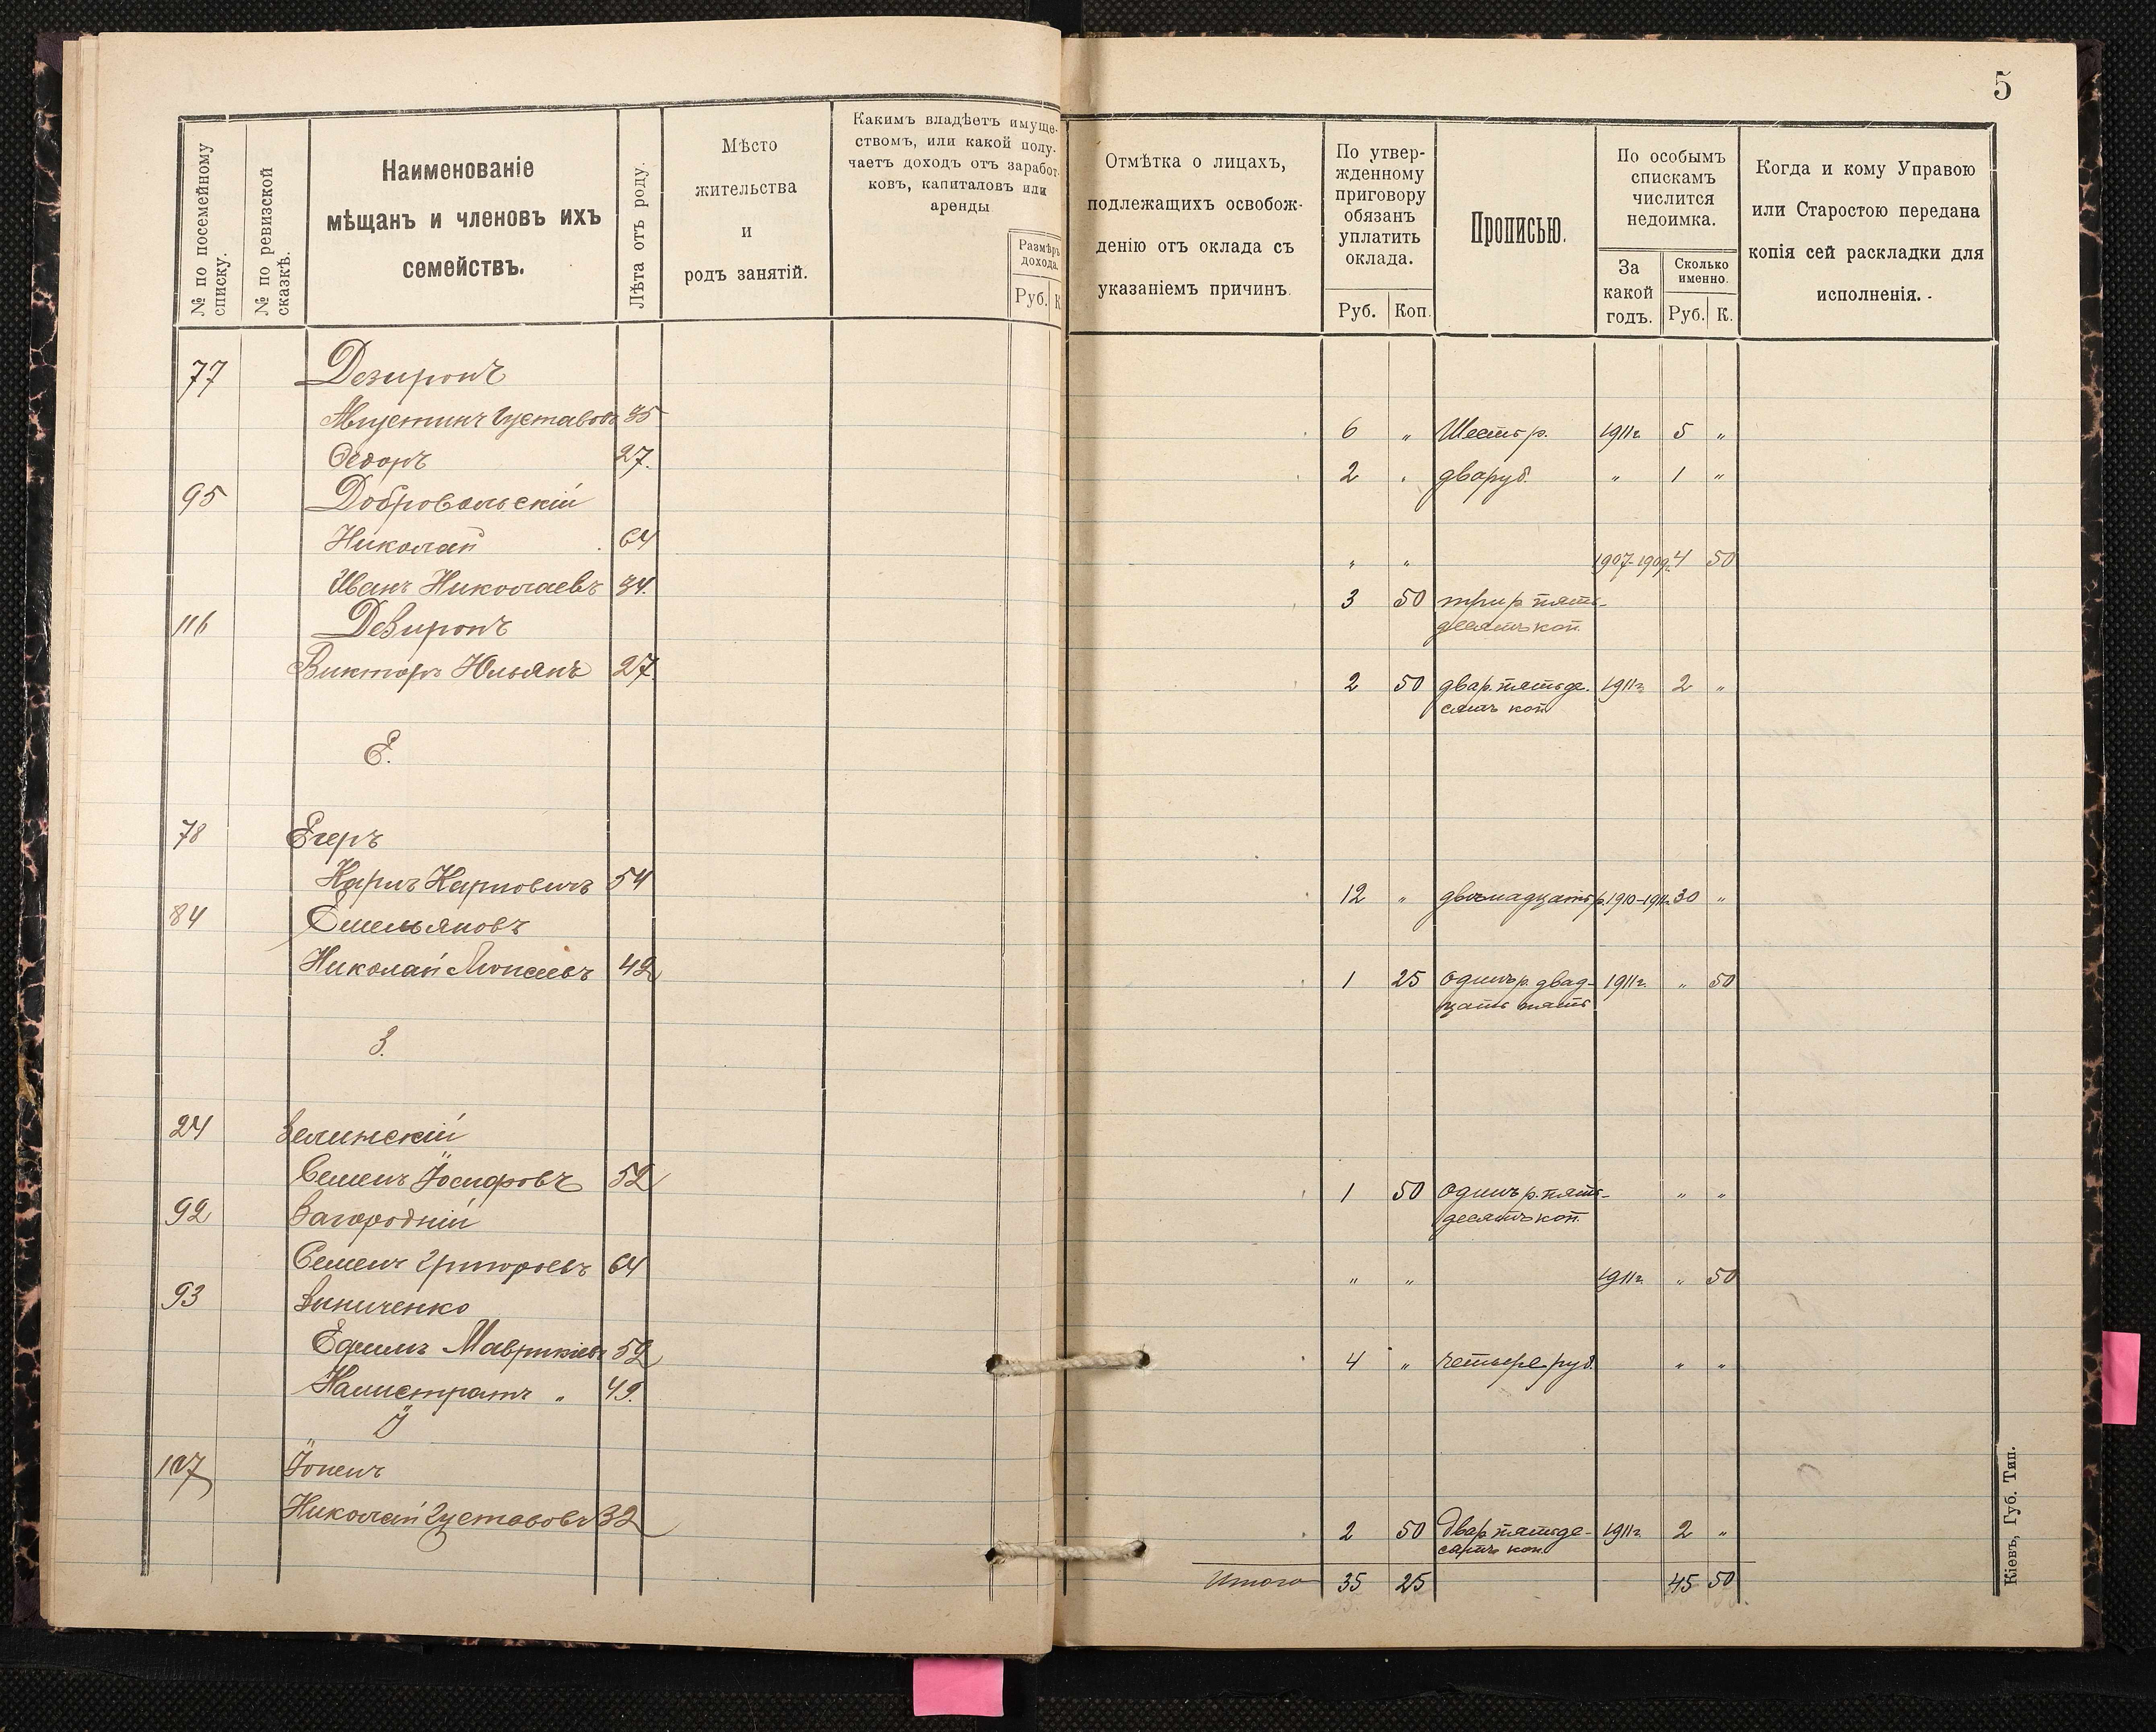 5
№ по посемейному списку.
№ по ревизской сказкѣ.
Наименованіе
мѣщанъ и членовъ ихъ
семействъ.
Лѣта отъ роду.
Мѣсто
жительства
и
родъ занятій.
Какимъ владѣетъ имуще-
ствомъ, или какой полу-
чаетъ доходъ отъ заработ-
ковъ, капиталовъ или
аренды
Размѣръ
дохода.
Руб. К
Отмѣтка о лицахъ,
подлежащихъ освобож-
денію отъ оклада съ
указаніемъ причинъ.
По утвер-
жденному
приговору
обязанъ
уплатить
оклада.
Руб. Коп.
Прописью.
По особымъ
спискамъ
числится
недоимка.
За
какой
годъ.
Сколько
именно.
Руб. К.
Когда и кому Управою
или Старостою передана
копія сей раскладки для
исполненія.
77 Дезиронъ
Августинъ Густавовъ 35 6 „ Шесть р. 1911г. 5 „
Ѳедоръ 27. 2 „ два руб. „ 1 „
95 Добровольскій
Николай 64 „ „ 1907-1909г. 4 50
Иванъ Николаевъ 34. 3 50 три р. пять-
десятъ коп.
116 Дезиронъ
Викторъ Юльянъ 27 2 50 два р. пятьде- 1911г. 2 „
сятъ коп.
Е.
78 Егеръ
Карлъ Карловичъ 54 12 „ двѣнадцать р. 1910-1911г. 30 „
84 Емельяновъ
Николай Моисеевъ 42 1 25 одинъ р. двад- 1911г. „ 50
цать пять
З.
24 Зелинскій
Семенъ Іосифовъ 52 1 50 одинъ р. пять- „ „
десятъ коп.
92 Загородній
Семенъ Григорьевъ 64 „ „ 1911г. „ 50
93 Зиниченко
Ефимъ Маврикіевъ 52 4 „ четыре руб. „ „
Калистратъ „ 49.
Ї
107 Їопенъ
Николай Густавовъ 32 2 50 два р. пятьде- 1911г. 2 „
сятъ коп.
Итого 35 25 45 50
Кіевъ, Губ. Тип.